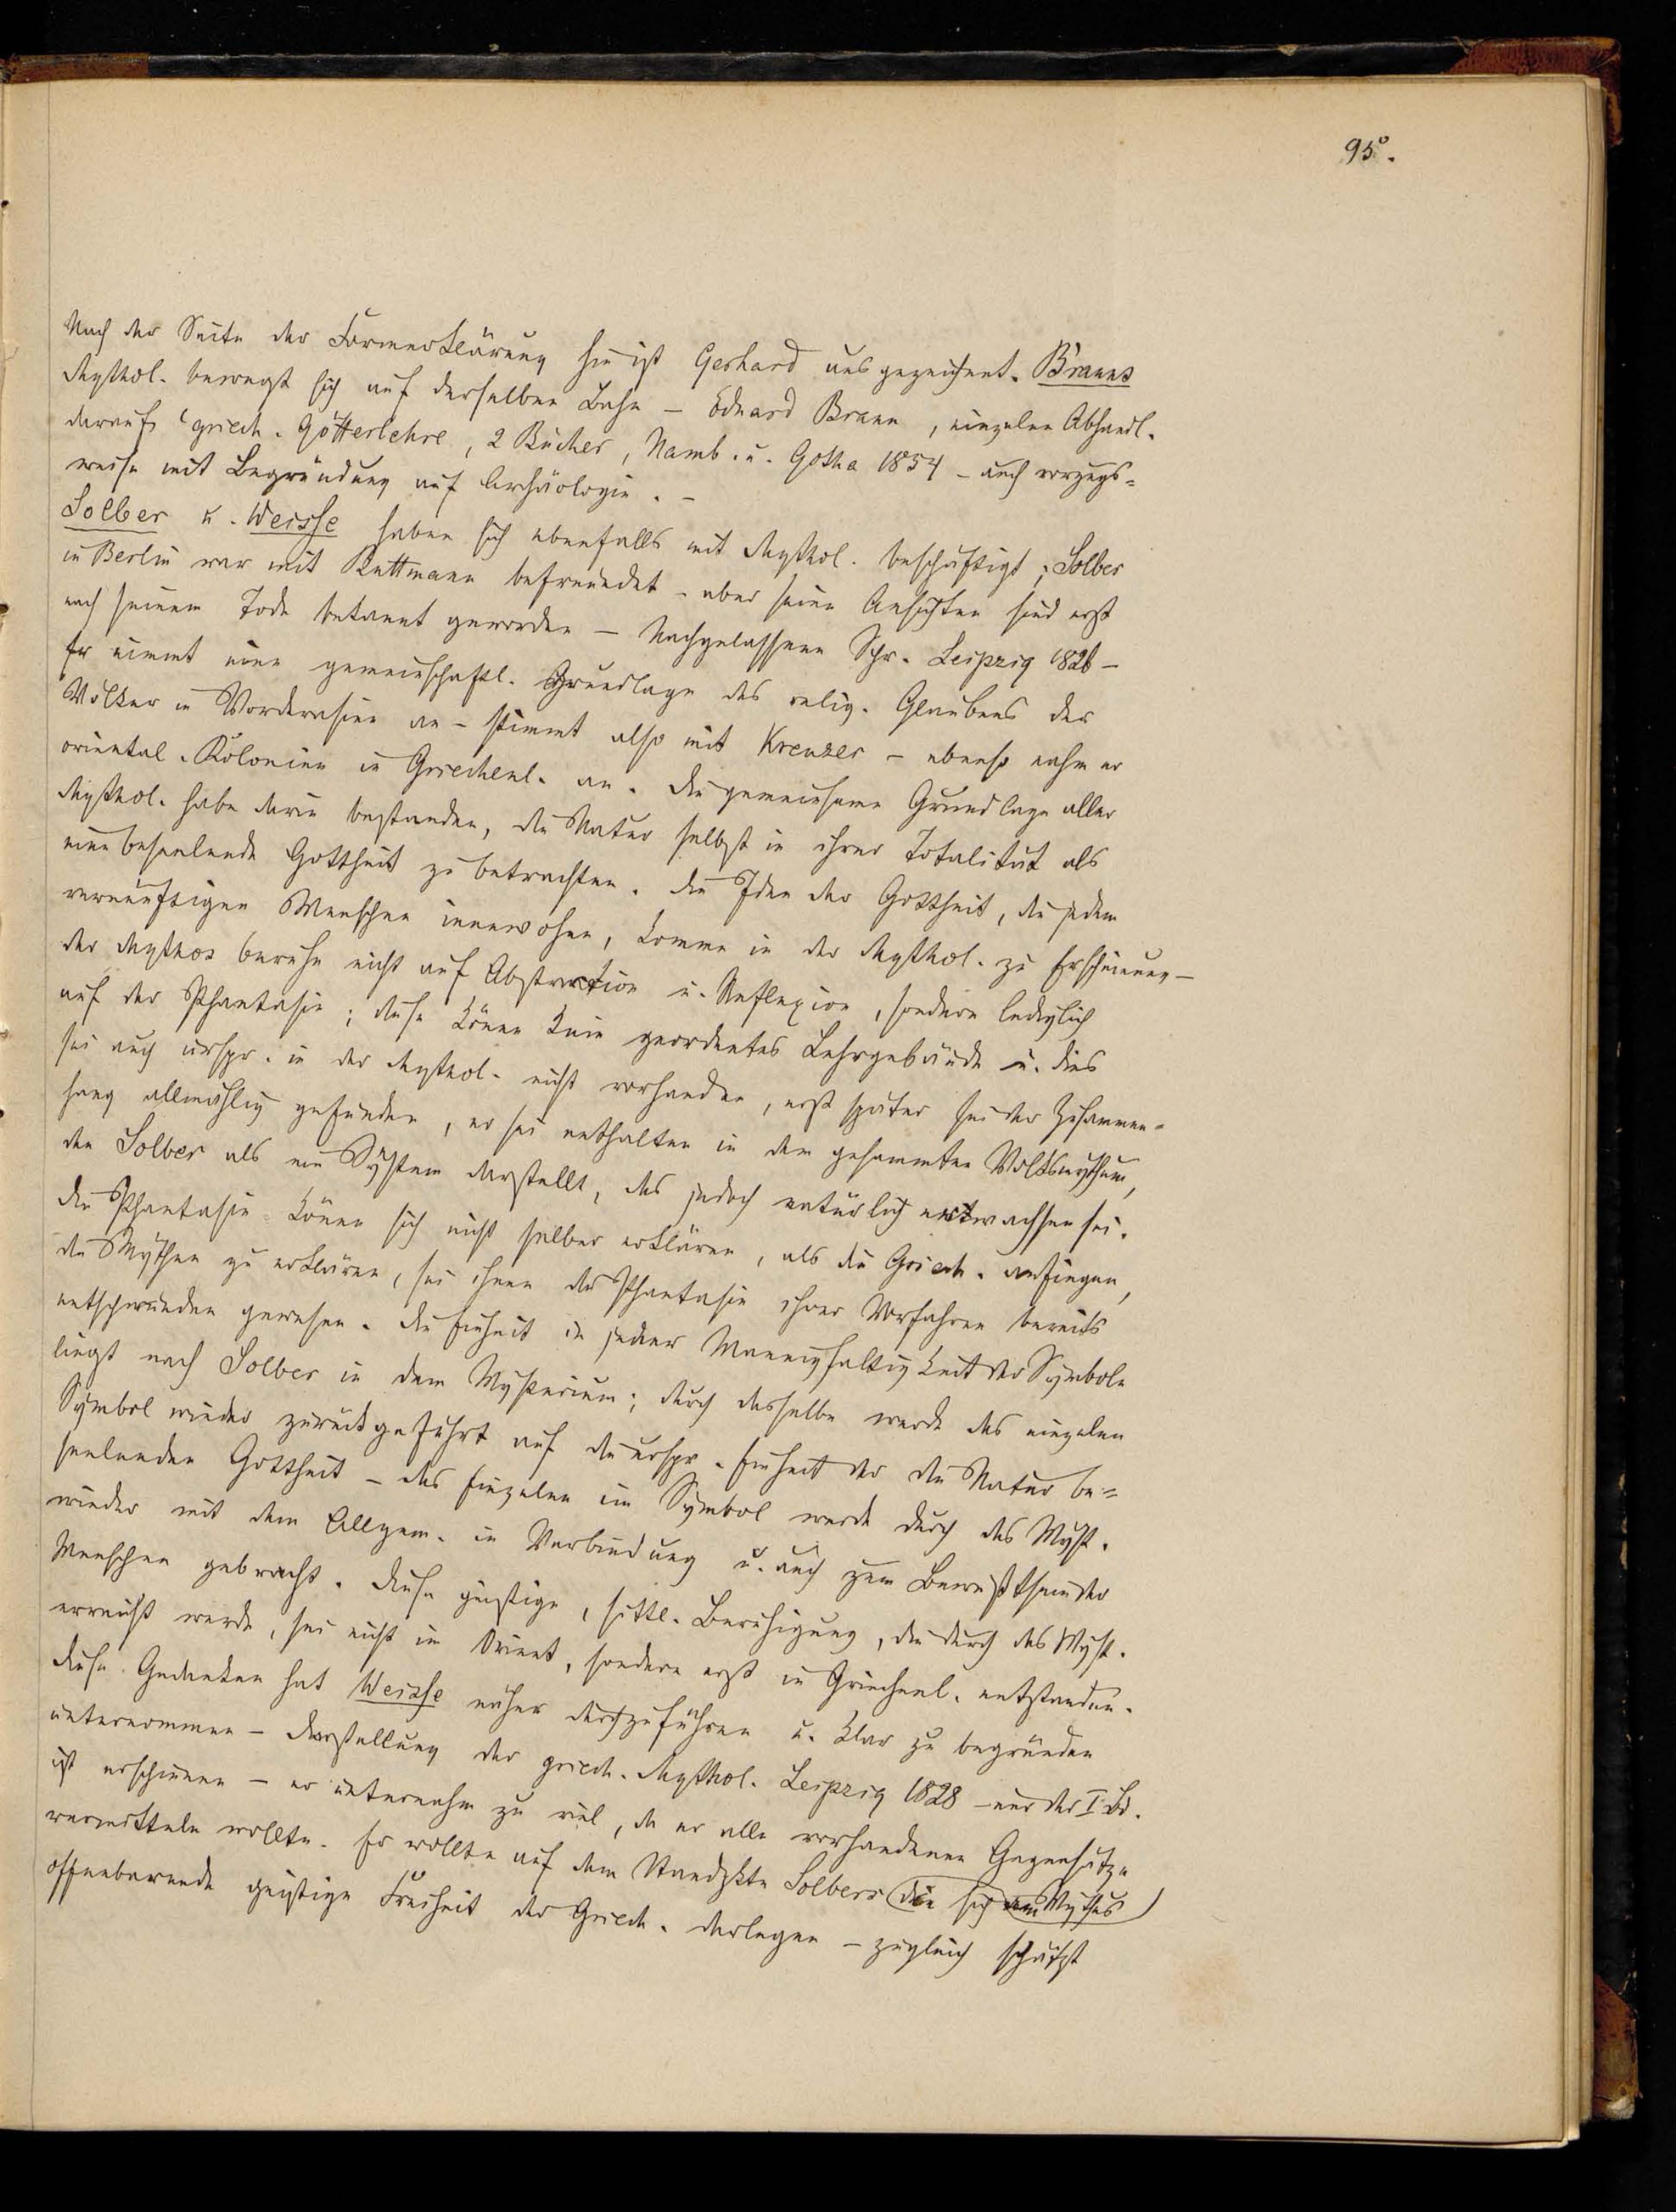 95°.
Nach der Seite der Formerklärung hin ist Gerhard ausgezeichnet. Brauns
Mythol. bewegt sich auf derselben Bahn – Eduard Braun, einzelne Abhandl.
darauf: griech. Götterlehre, 2 Bücher, Hamb. u. Gotha 1854 – auch vorzugs=
weise mit Begründung auf Archäologie. –
Solber u. Weisse haben sich ebenfalls mit Mythol. beschäftigt; Solber
in Berlin war mit Buttmann befreundet – aber seine Ansichten sind erst
nach seinem Tode bekannt geworden – Nachgelassene Schr. Leipzig 1826 –
Er nimmt eine gemeinschaftl. Grundlage des relig. Glaubens der
Völker in Vorderasien an – stimmt also mit Kreuzer – ebenso nahm er
oriental. Kolonien in Griechenl. an. Die gemeinsame Grundlage aller
Mythol. habe darin bestanden, die Natur selbst in ihrer Totalität als
eine beseelende Gottheit zu betrachten. Die Idee der Gottheit, die jedem
vernünftigen Menschen innewohne, komme in der Mythol. zu Erscheinung –
der Mythos beruhe nicht auf Abstraction u. Reflexion, sondern lediglich
auf der Phantasie; diese könne kein geordnetes Lehrgebäude u. dies
sei auch urspr. in der Mythol. nicht vorhanden, erst später sei der Zusammen=
hang allmählig gefunden, er sei enthalten in dem gesammten Volksmythum,
den Solber als ein System darstellt, das jedoch natürlich entwachsen sei.
Die Phantasie könne sich nicht selber erklären, als die Griech. anfingen,
die Mythen zu erklären, sei ihnen die Phantasie ihrer Vorfahren bereits
entschwunden gewesen. Die Einheit in jener Mannigfaltigkeit der Symbole
liegt nach Solber in dem Mysterium; durch dasselbe werde das einzelne
Symbol wieder zurückgeführt auf die urspr. Einheit der die Natur be=
seelenden Gottheit – das Einzelne im Symbol werde durch das Myst.
wieder mit dem Allgem. in Verbindung u. auch zum Bewußtsein der
Menschen gebracht. Diese geistige, sittl. Beruhigung, die durch das Myst.
erreicht werde, sei nicht im Orient, sondern erst in Griechenl. entstanden.
Diese Gedanken hat Weisse näher durchzuführen u. klar zu begründen
unternommen – Darstellung der griech. Mythol. Leipzig 1828 – nur der I. Bd.
ist erschienen – er unternahm zu viel, da er alle vorhandenen Gegensätze
vermitteln wollte. Er wollte auf dem Standpkte Solbers die sich im Mythus
offenbarende geistige Freiheit der Griech. darlegen – zugleich schätzt